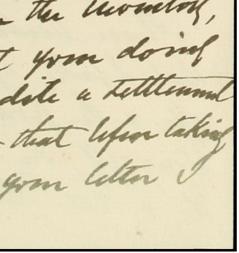 the
t your doing
dite a settlement
that before taking
your letter I